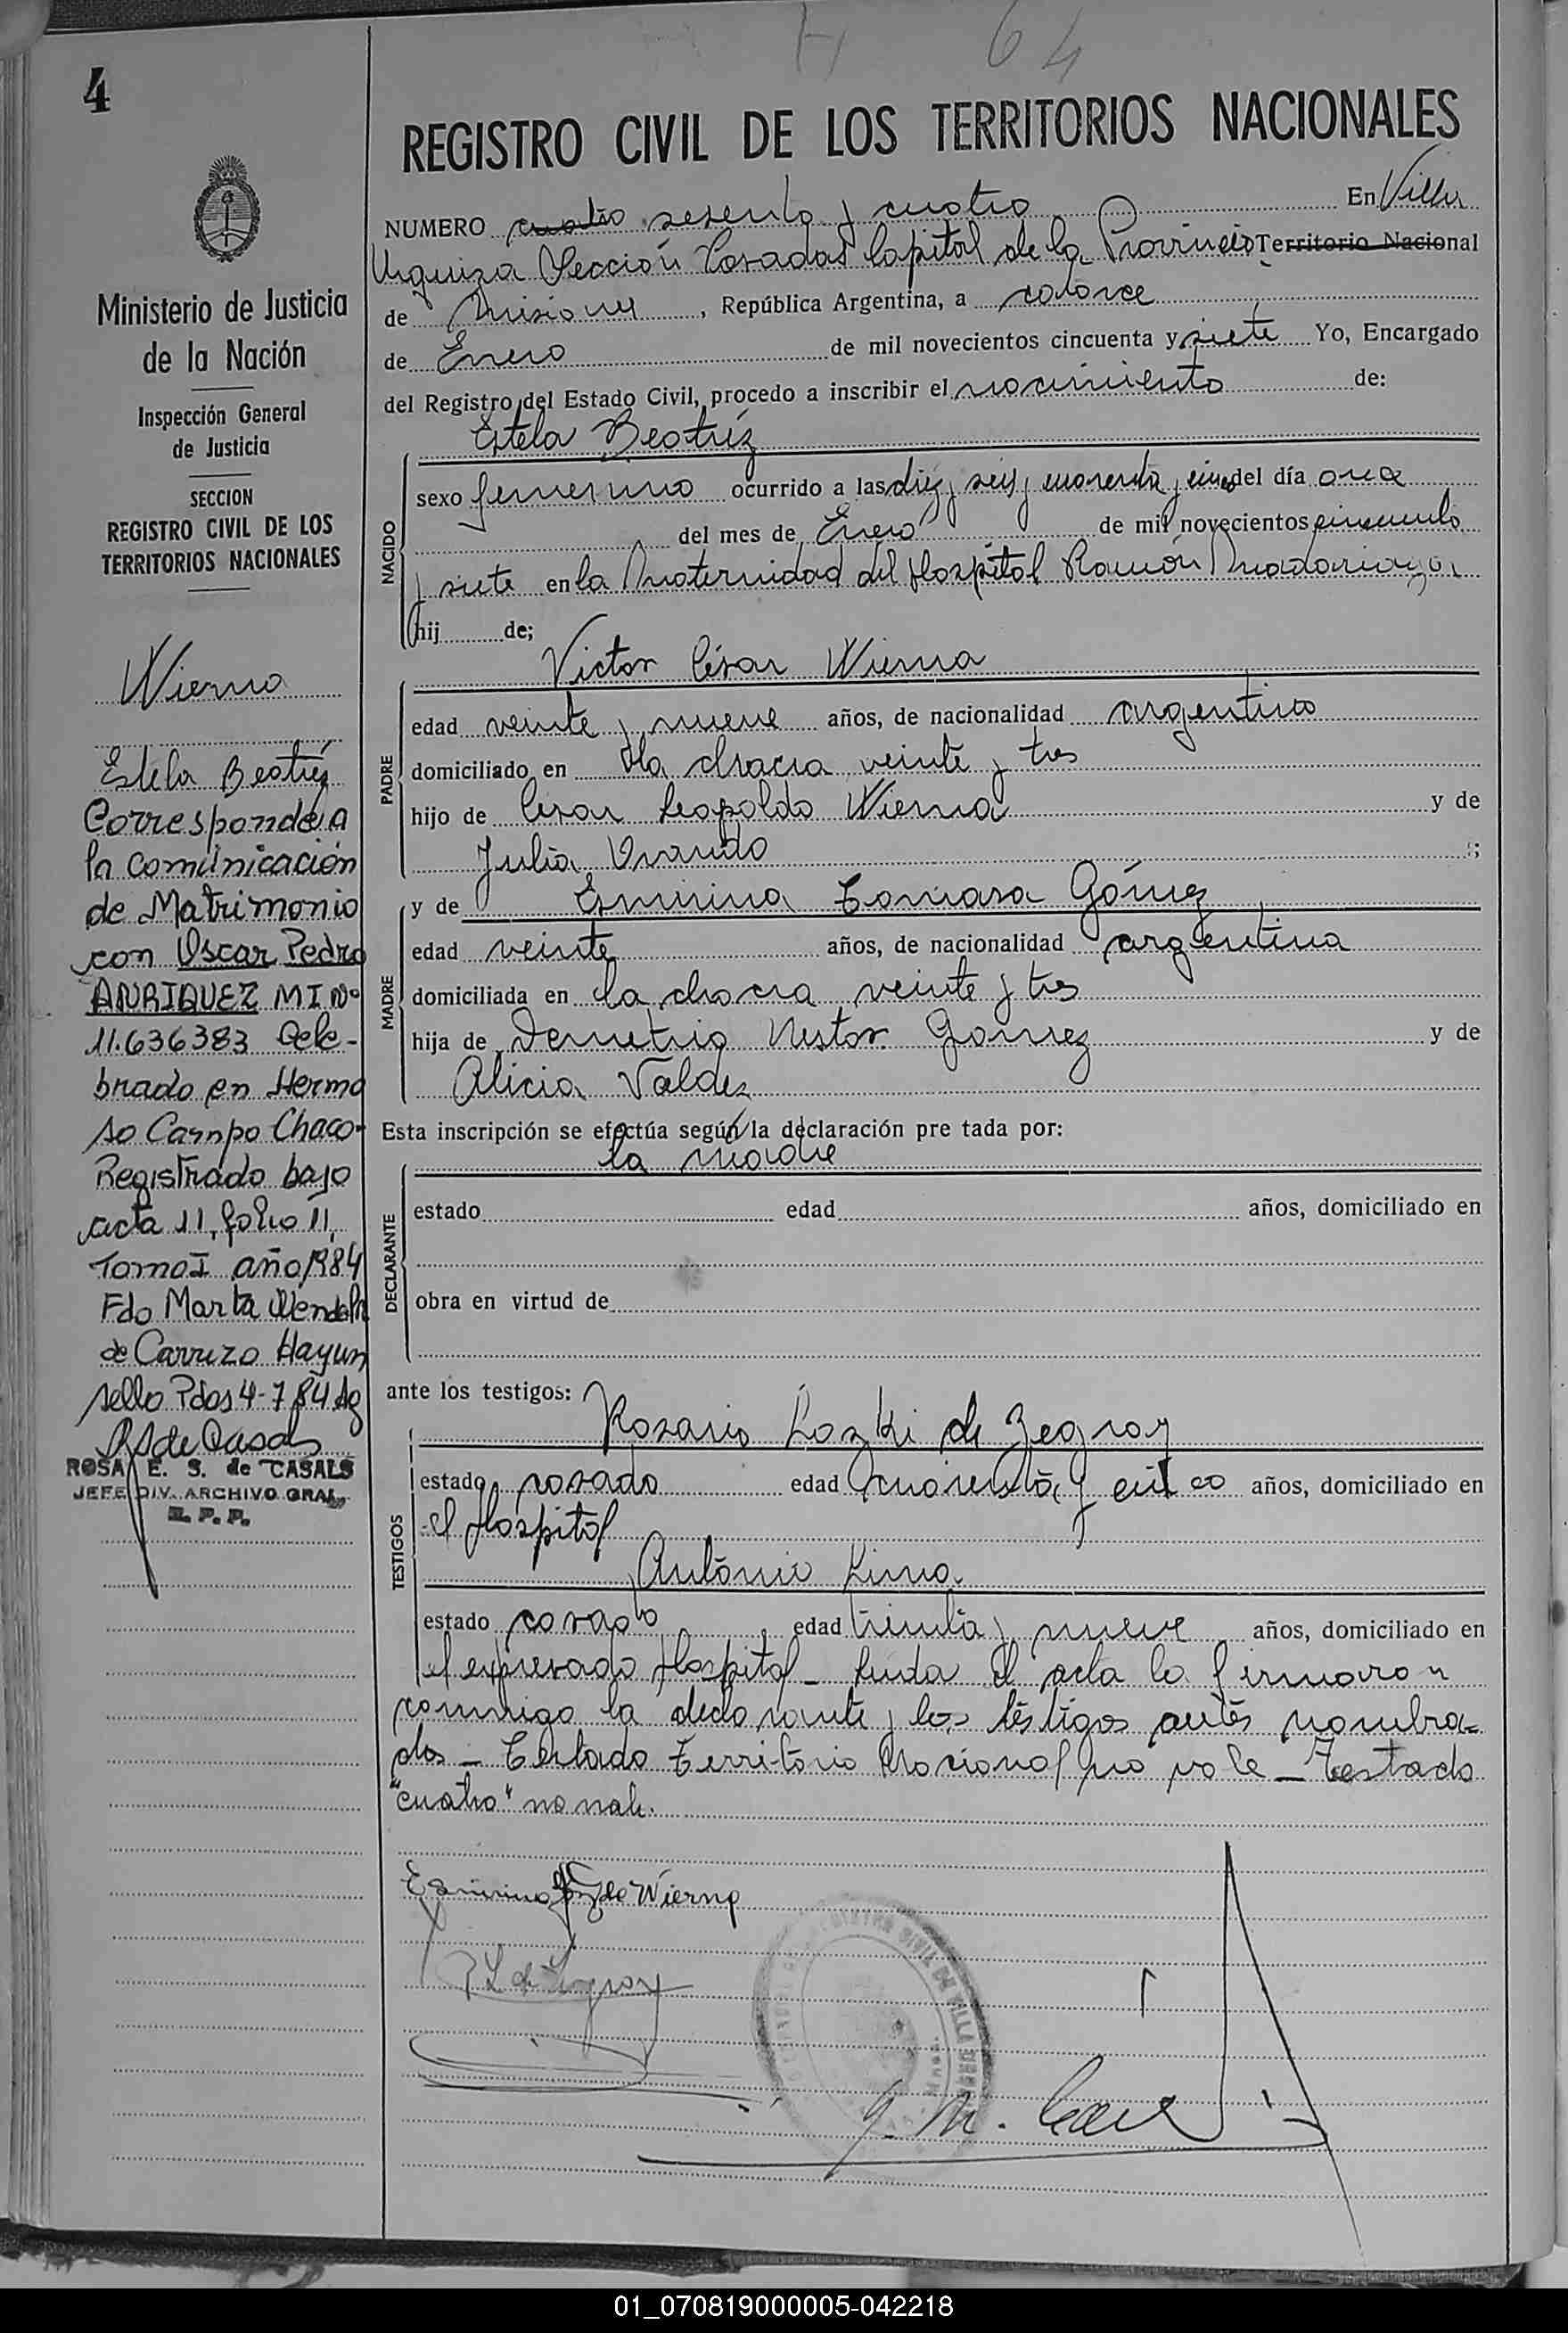 H 64
4
REGISTRO CIVIL DE LOS TERRITORIOS NACIONALES
NUMERO cuatro sesenta y cuatro En Villa
Urquiza Sección Posadas Capital de la Provincia Territorio Nacional
de Misiones, República Argentina, a catorce
de Enero de mil novecientos cincuenta y siete Yo, Encargado
del Registro del Estado Civil, procedo a inscribir el nacimiento de:
Estela Beatríz
NACIDO
sexo femenino ocurrido a las diez y seis y cuarenta y cinco del día once
del mes de Enero de mil novecientos cincuenta
y siete en la Maternidad del Hospital Ramón Madariaga
hij de;
Victor César Wierna
PADRE
edad veinte y nueve años, de nacionalidad argentino
domiciliado en la chacra veinte y tres
hijo de César Leopoldo Wierna y de
Julia Ovando ;
y de Erminina Tomasa Gómez
MADRE
edad veinte años, de nacionalidad argentina
domiciliada en la chacra veinte y tres
hija de Demetrio Nestor Gomez y de
Alicia Valdez
Esta inscripción se efectúa según la declaración pre tada por:
la madre
DECLARANTE
estado edad años, domiciliado en
obra en virtud de
ante los testigos:
Rosario Lozki de Zegray
TESTIGOS
estado casado edad cuarenta y cinco años, domiciliado en
el Hospital
Antonio Lima
estado casado edad treinta y nueve años, domiciliado en
el expresado Hospital - Leida el acta la firmaron
conmigo la declarante y los testigos antes nombra=
dos - Testado Territorio Nacional no vale - Testado
"cuatro" no vale.
de Wierna
R L de Zegray
Ministerio de Justicia
de la Nación
Inspección General
de Justicia
SECCION
REGISTRO CIVIL DE LOS
TERRITORIOS NACIONALES
Wierna
Estela Beatríz
Corresponde a
la comunicación
de Matrimonio
con Oscar Pedro
ANRIQUEZ M I Nº
11.636383 Cele-
brado en Hermo
so Campo Chaco-
Registrado bajo
acta 11, folio 11,
Tomo I año 1984
Fdo Marta
de Carrizo Hayun
sello Pdas 4-7-84
ROSA E. S. de CASALS
JEFE DIV. ARCHIVO GRAL
R. P. P.
01_070819000005-042218